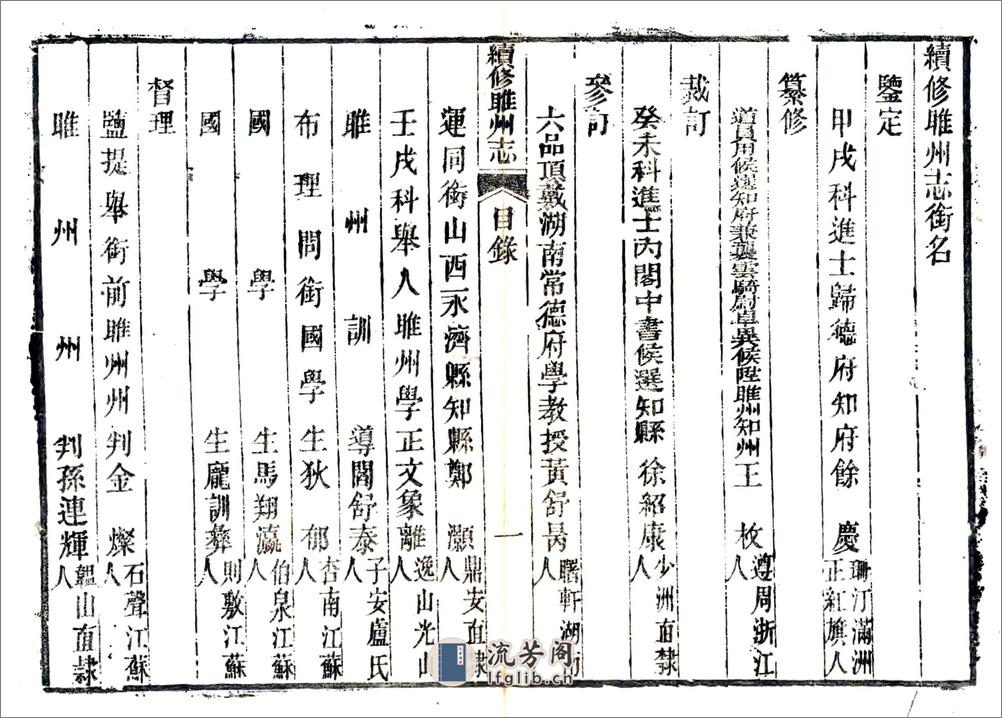 續修睢州志銜名
鑒定
甲戌科進士歸德府知府餘慶珊汀滿洲正紅旗人
纂修
道員用候選知府兼襲雲騎尉卓異候陞睢州知州王枚遵周浙江人
裁訂
癸未科進士內閣中書候選知縣徐紹康少洲直隸人
參訂
六品頂戴湖南常德府學教授黃舒昺曙軒湖南人
續修睢州志 目錄 一
運同銜山西永濟縣知縣鄭灝鼎安直隸人
壬戌科舉人睢州學正文象離逸山光山人
睢州訓導閻舒泰子安盧氏人
布理問銜國學生狄郁杏南江蘇人
國學生馬翔瀛伯泉江蘇人
國學生龐訓彝則敷江蘇人
督理
鹽提舉銜前睢州州判金燦石聲江蘇人
睢州州判孫連輝韞山直隸人
流芳阁
lfglib.ch